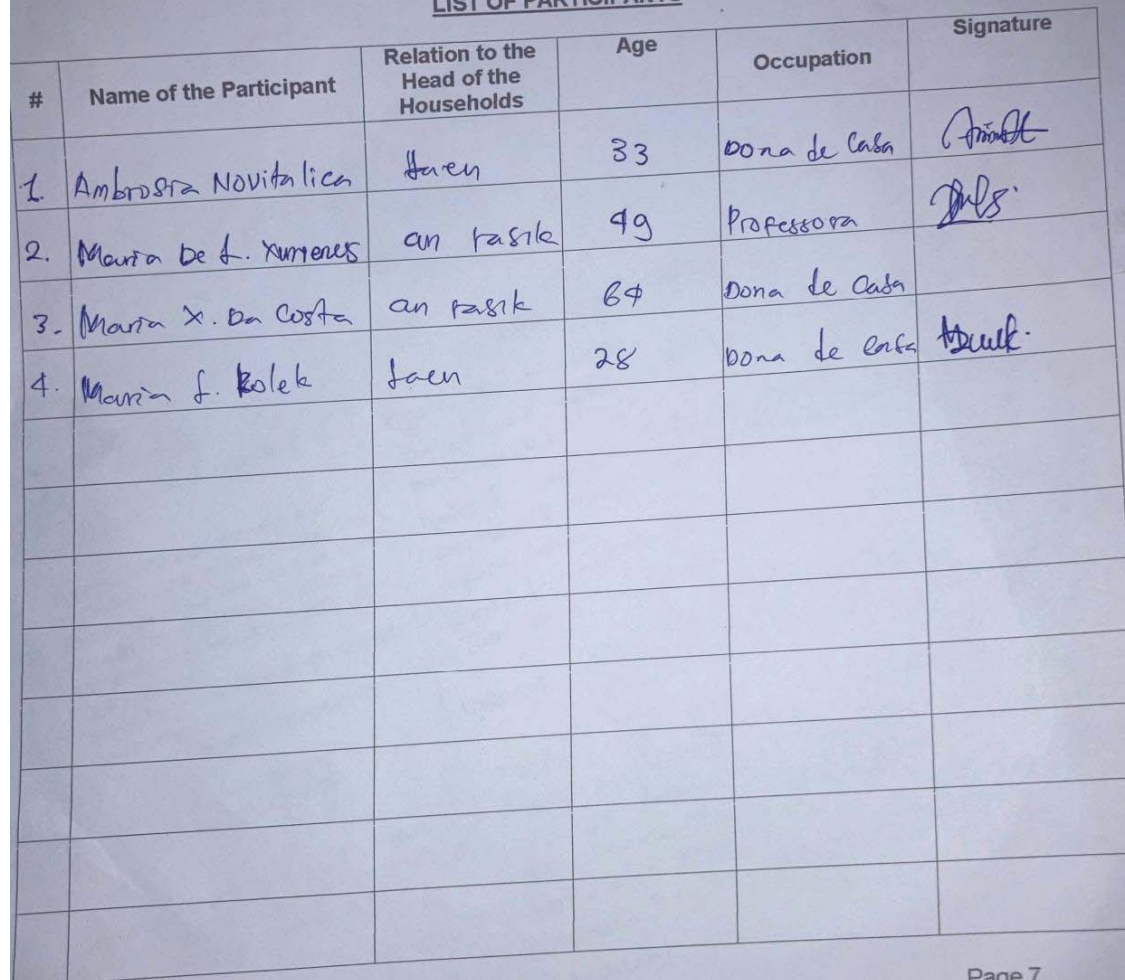 LIST OF PARTICIPANTS
# Name of the Participant Relation to the Head of the Households Age Occupation Signature
1. Ambrosia Novitalica faen 33 Dona de Casa
2. Maria De L. Xumenes an rasik 49 Professora
3. Maria X. Da Costa an rasik 64 Dona de Casa
4. Maria f. Kolek faen 28 Dona de Casa
Page 7